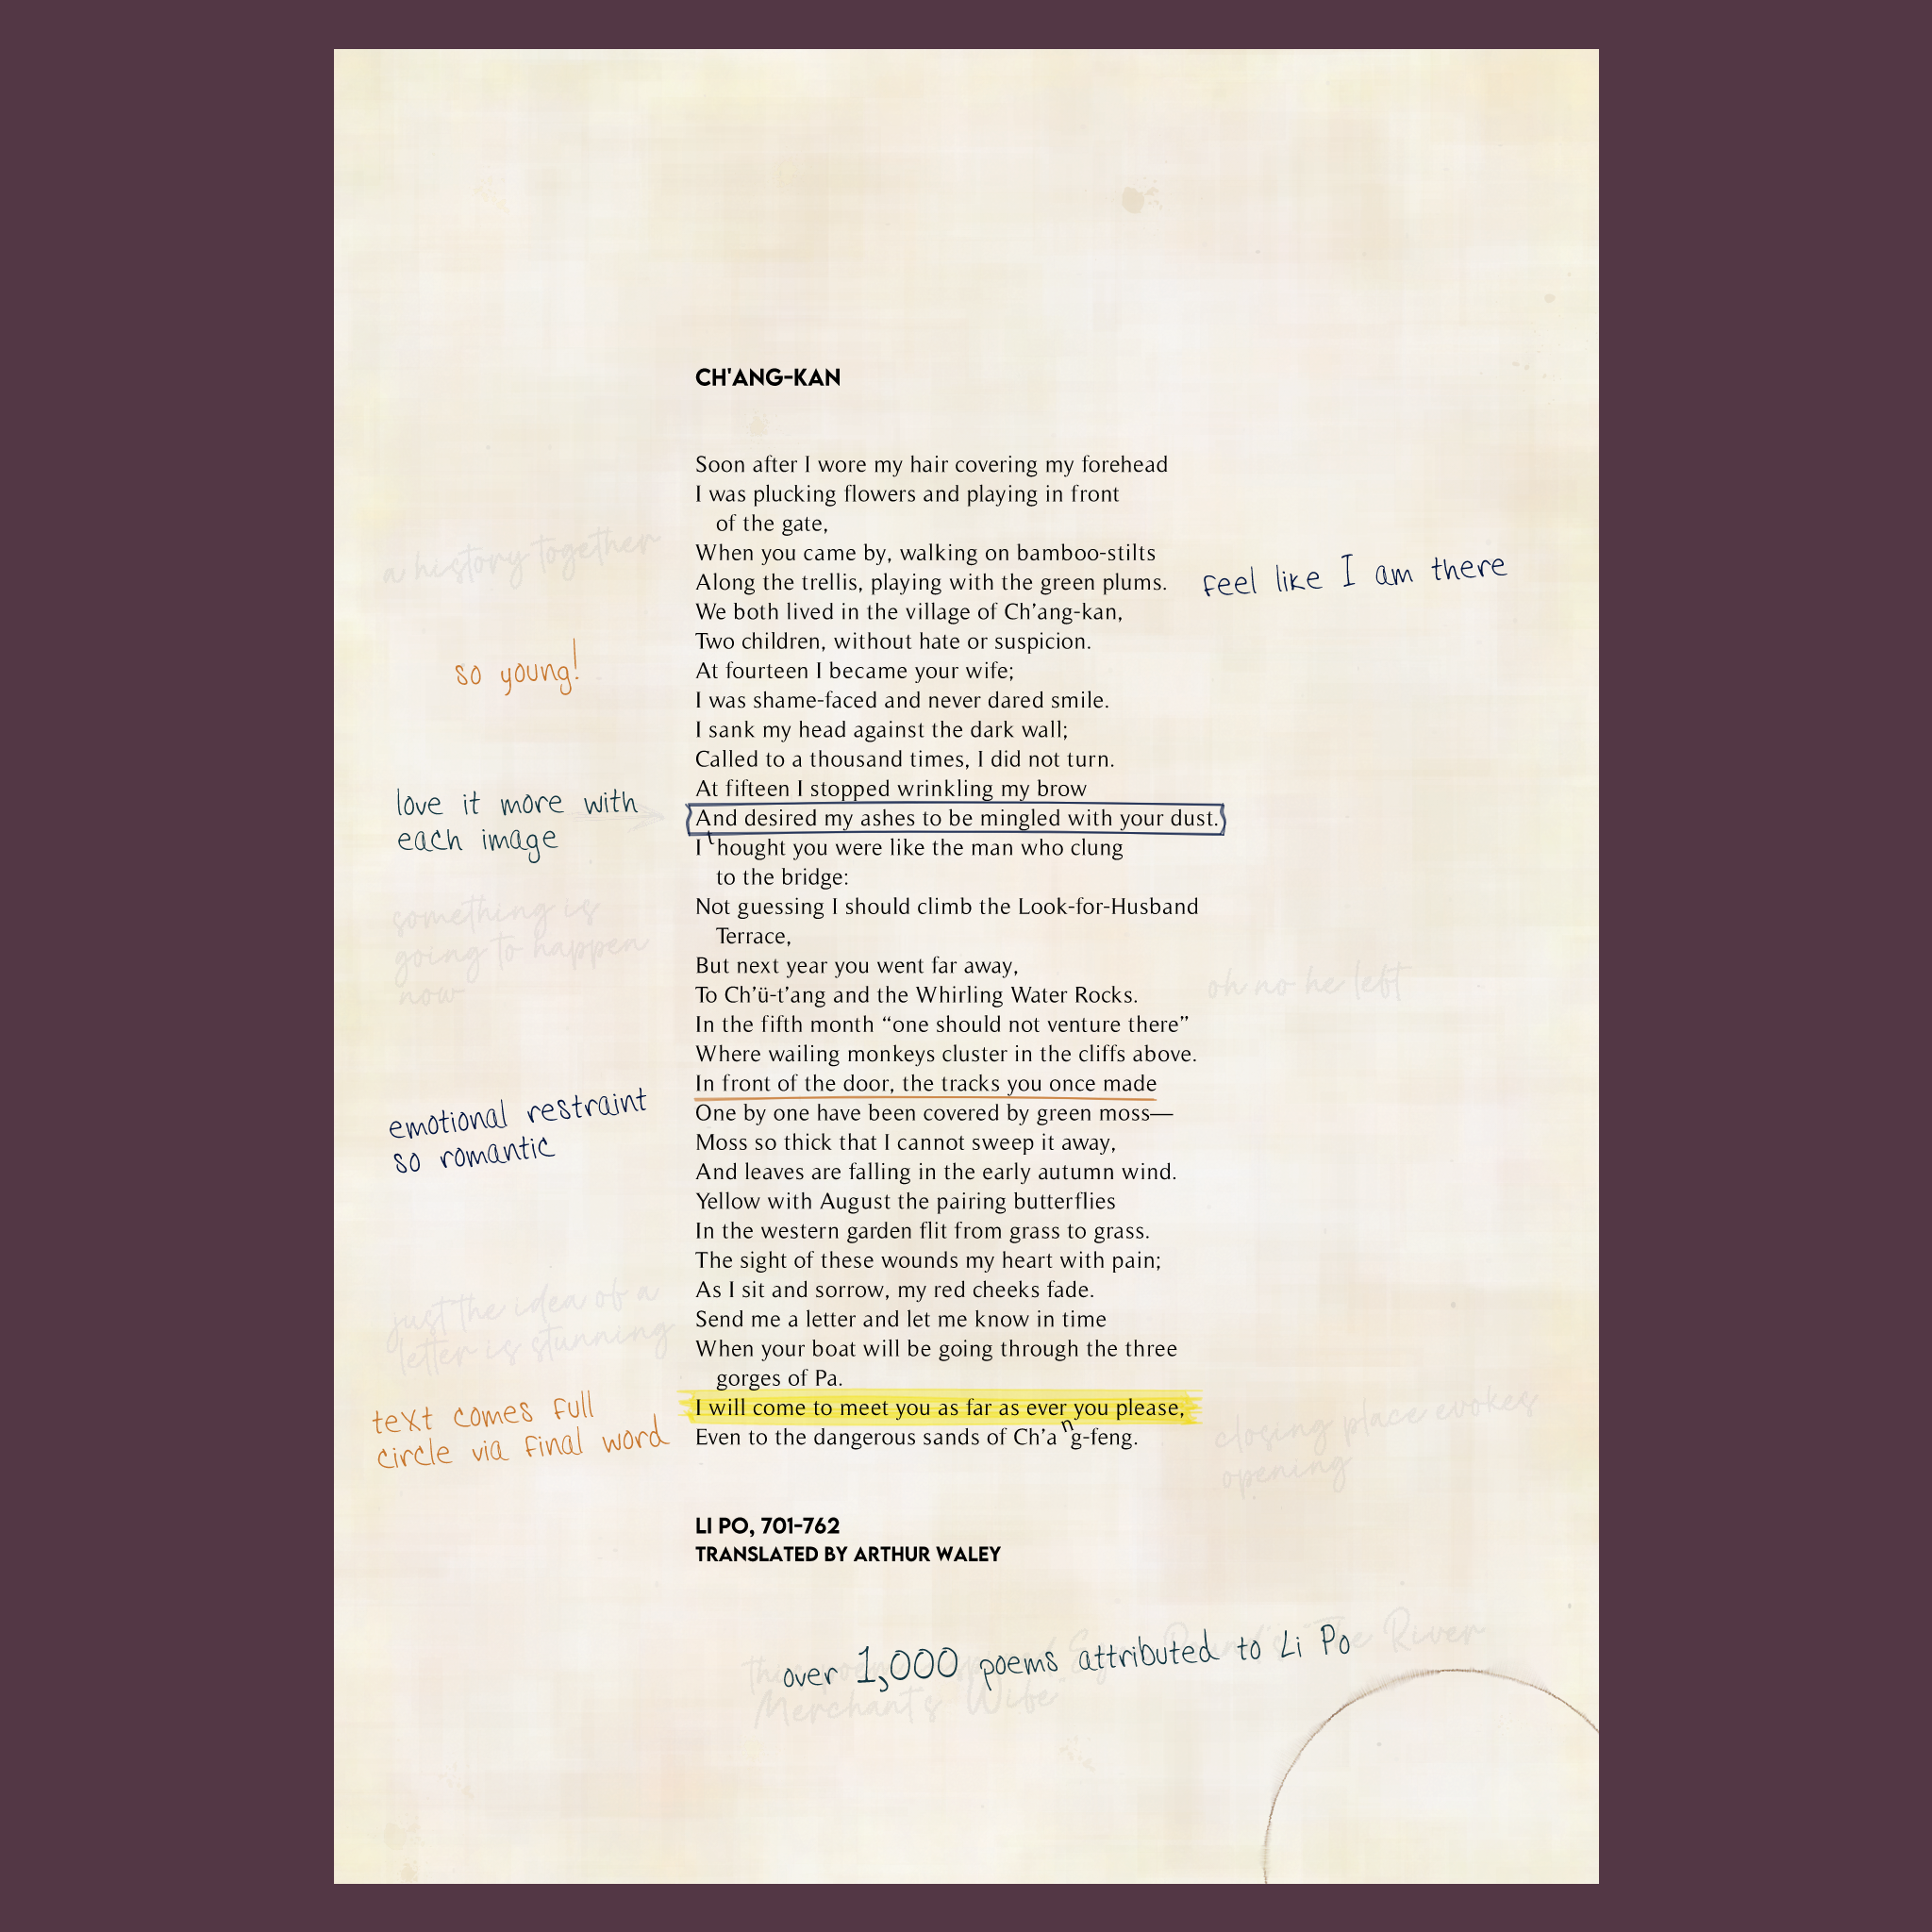 CH'ANG-KAN
Soon after I wore my hair covering my forehead
I was plucking flowers and playing in front
of the gate,
a history together
When you came by, walking on bamboo-stilts
Along the trellis, playing with the green plums.
feel like I am there
We both lived in the village of Ch’ang-kan,
Two children, without hate or suspicion.
so young!
At fourteen I became your wife;
I was shame-faced and never dared smile.
I sank my head against the dark wall;
Called to a thousand times, I did not turn.
At fifteen I stopped wrinkling my brow
love it more with
each image
And desired my ashes to be mingled with your dust.
I thought you were like the man who clung
to the bridge:
something is
going to happen
now
Not guessing I should climb the Look-for-Husband
Terrace,
But next year you went far away,
oh no he left
To Ch’ü-t’ang and the Whirling Water Rocks.
In the fifth month “one should not venture there”
Where wailing monkeys cluster in the cliffs above.
In front of the door, the tracks you once made
emotional restraint
so romantic
One by one have been covered by green moss—
Moss so thick that I cannot sweep it away,
And leaves are falling in the early autumn wind.
Yellow with August the pairing butterflies
In the western garden flit from grass to grass.
The sight of these wounds my heart with pain;
As I sit and sorrow, my red cheeks fade.
just the idea of a
letter is stunning
Send me a letter and let me know in time
When your boat will be going through the three
gorges of Pa.
text comes full
circle via final word
I will come to meet you as far as ever you please,
Even to the dangerous sands of Ch’ang-feng.
closing place evokes
opening
LI PO, 701-762
TRANSLATED BY ARTHUR WALEY
over 1,000 poems attributed to Li Po
River
Merchant's Wife"